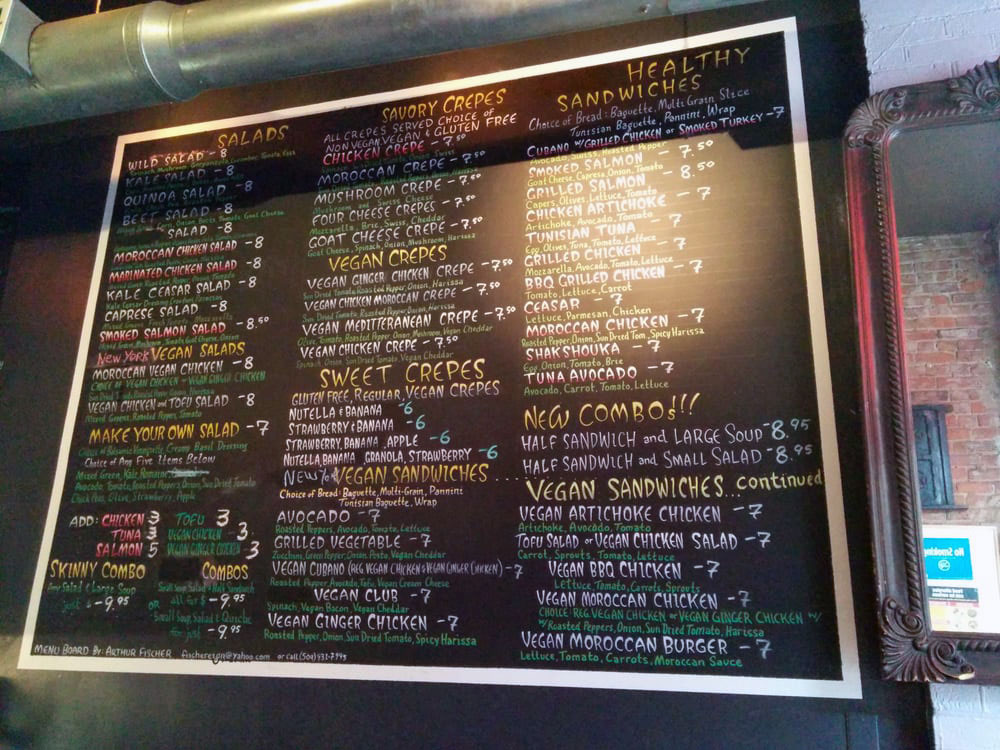 SALADS
WILD SALAD - 8
KALE SALAD - 8
QUINOA SALAD - 8
BEET SALAD - 8
SALAD - 8
MOROCCAN CHICKEN SALAD - 8
MARINATED CHICKEN SALAD - 8
KALE CEASAR SALAD - 8
CAPRESE SALAD - 8
SMOKED SALMON SALAD - 8.50
New York VEGAN SALADS
MOROCCAN VEGAN CHICKEN - 8
CHOICE OF VEGAN CHICKEN or VEGAN GINGER CHICKEN
VEGAN CHICKEN and TOFU SALAD - 8
Mixed Greens, Roasted Pepper, Tomato
MAKE YOUR OWN SALAD - 7
Choice of Balsamic Vinaigrette, Creamy Basil Dressing
Choice of Any Five Items Below
Mixed Green, Kale, Romaine
Avocado, Tomato, Roasted Peppers, Onion, Sun Dried Tomato
Chick Peas, Olive, Strawberry, Apple
ADD: CHICKEN 3 TOFU 3
TUNA 3 VEGAN CHICKEN - 3
SALMON 5 VEGAN GINGER CHICKEN 3
SKINNY COMBO
Any Salad & Large Soup
just $ - 9.95
COMBOS
Small Soup, Salad & Half Sandwich
OR all for $ - 9.95
Small Soup, Salad & Quiche
for just - 9.95
MENU BOARD BY: ARTHUR FISCHER
SAVORY CREPES
ALL CREPES SERVED CHOICE OF
NON VEGAN, VEGAN & GLUTEN FREE
CHICKEN CREPE - 7.50
MOROCCAN CREPE - 7.50
MUSHROOM CREPE - 7.50
FOUR CHEESE CREPES - 7.50
Mozzarella, Brie, Swiss, Cheddar
GOAT CHEESE CREPE - 7.50
Goat Cheese, Spinach, Onion, Mushroom, Harissa
VEGAN CREPES
VEGAN GINGER CHICKEN CREPE - 7.50
Sun Dried Tomato, Roasted Pepper, Onion, Harissa
VEGAN CHICKEN MOROCCAN CREPE - 7.50
Sun Dried Tomato, Roasted Pepper, Onion, Harissa
VEGAN MEDITTERANEAN CREPE - 7.50
Olive, Tomato, Roasted Pepper, Onion, Mushroom, Vegan Cheddar
VEGAN CHICKEN CREPE - 7.50
Spinach, Onion, Sun Dried Tomato, Vegan Cheddar
SWEET CREPES
GLUTEN FREE, REGULAR, VEGAN CREPES
NUTELLA & BANANA - 6
STRAWBERRY & BANANA - 6
STRAWBERRY, BANANA, APPLE - 6
NUTELLA, BANANA, GRANOLA, STRAWBERRY - 6
New York VEGAN SANDWICHES...
Choice of Bread: Baguette, Multi-Grain, Pannini
Tunisian Baguette, Wrap
AVOCADO - 7
Roasted Peppers, Avocado, Tomato, Lettuce
GRILLED VEGETABLE - 7
Zucchini, Green Pepper, Onion, Pesto, Vegan Cheddar
VEGAN CUBANO (REG VEGAN CHICKEN & VEGAN GINGER CHICKEN) - 7
Roasted Pepper, Avocado, Tofu, Vegan Cream Cheese
VEGAN CLUB - 7
Spinach, Vegan Bacon, Vegan Cheddar
VEGAN GINGER CHICKEN - 7
Roasted Pepper, Onion, Sun Dried Tomato, Spicy Harissa
HEALTHY
SANDWICHES
Choice of Bread: Baguette, Multi Grain Slice
Tunisian Baguette, Pannini, Wrap
CUBANO W/GRILLED CHICKEN or SMOKED TURKEY - 7
Avocado, Swiss, Roasted Pepper
SMOKED SALMON - 7.50
Goat Cheese, Capers, Onion, Tomato
GRILLED SALMON - 8.50
Capers, Olives, Lettuce, Tomato
CHICKEN ARTICHOKE - 7
Artichoke, Avocado, Tomato
TUNISIAN TUNA - 7
Egg, Olives, Tuna, Tomato, Lettuce
GRILLED CHICKEN - 7
Mozzarella, Avocado, Tomato, Lettuce
BBQ GRILLED CHICKEN - 7
Tomato, Lettuce, Carrot
CEASAR - 7
Lettuce, Parmesan, Chicken
MOROCCAN CHICKEN - 7
Roasted Pepper, Onion, Sun Dried Tom, Spicy Harissa
SHAKSHOUKA - 7
Egg, Onion, Tomato, Brie
TUNA AVOCADO - 7
Avocado, Carrot, Tomato, Lettuce
NEW COMBOs!!!
HALF SANDWICH and LARGE SOUP - 8.95
HALF SANDWICH and SMALL SALAD - 8.95
VEGAN SANDWICHES... continued
VEGAN ARTICHOKE CHICKEN - 7
Artichoke, Avocado, Tomato
TOFU SALAD or VEGAN CHICKEN SALAD - 7
Carrot, Sprouts, Tomato, Lettuce
VEGAN BBQ CHICKEN - 7
Lettuce, Tomato, Carrots, Sprouts
VEGAN MOROCCAN CHICKEN - 7
CHOICE: REG. VEGAN CHICKEN or VEGAN GINGER CHICKEN w/
w/Roasted Peppers, Onion, Sun Dried Tomato, Harissa
VEGAN MOROCCAN BURGER - 7
Lettuce, Tomato, Carrots, Moroccan Sauce
No Smoking